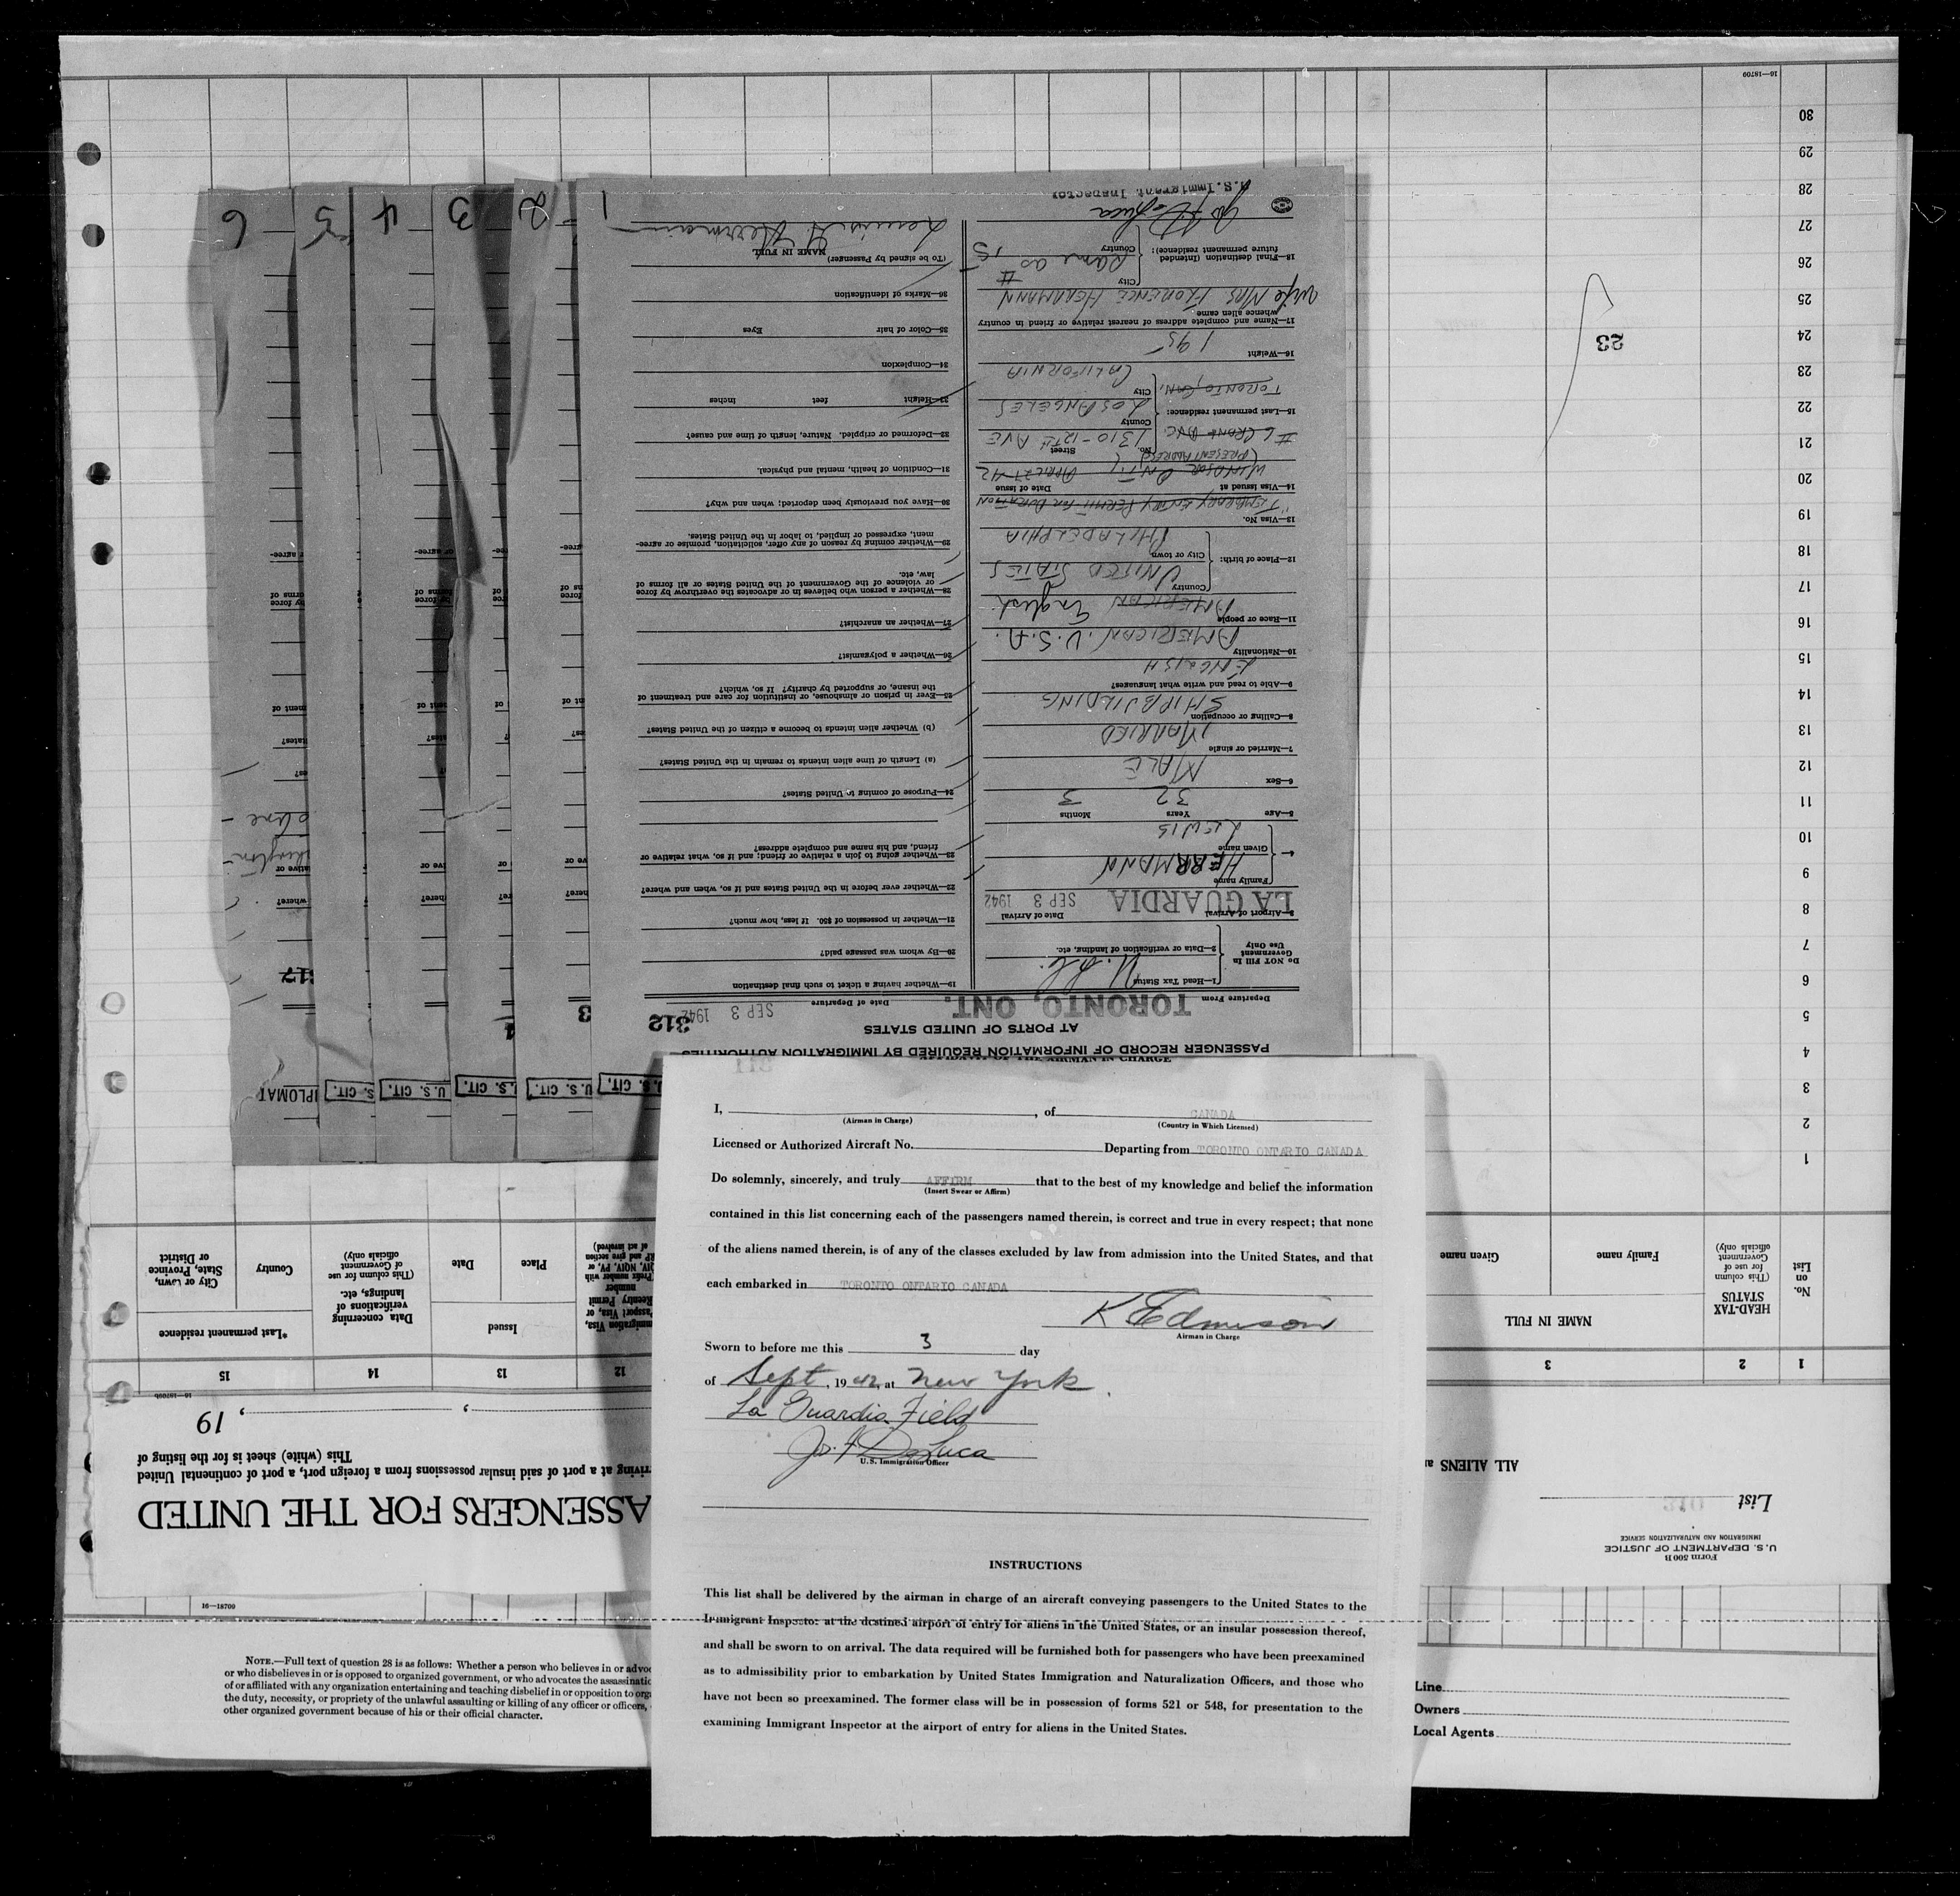 I, ____, of CANADA
(Airman in Charge) (Country in Which Licensed)
Licensed or Authorized Aircraft No. ____ Departing from TORONTO ONTARIO CANADA
Do solemnly, sincerely, and truly AFFIRM that to the best of my knowledge and belief the information
(Insert Swear or Affirm)
contained in this list concerning each of the passengers named therein, is correct and true in every respect; that none
of the aliens named therein, is of any of the classes excluded by law from admission into the United States, and that
each embarked in TORONTO ONTARIO CANADA
K Edmison
Airman in Charge
Sworn to before me this 3 day
of Sept, 1942, at New York.
La Guardia Field
Jos. F. DeLuca
U.S. Immigration Officer
INSTRUCTIONS
This list shall be delivered by the airman in charge of an aircraft conveying passengers to the United States to the
Immigrant Inspector at the destined airport of entry for aliens in the United States, or an insular possession thereof,
and shall be sworn to on arrival. The data required will be furnished both for passengers who have been preexamined
as to admissibility prior to embarkation by United States Immigration and Naturalization Officers, and those who
have not been so preexamined. The former class will be in possession of forms 521 or 548, for presentation to the
examining Immigrant Inspector at the airport of entry for aliens in the United States.
PASSENGER RECORD OF INFORMATION REQUIRED BY IMMIGRATION AUTHORITIES
AT PORTS OF UNITED STATES
312
U.S. CIT.
Departure From TORONTO, ONT. Date of Departure SEP 3 1942
DO NOT FILL IN
Government
Use Only
1—Head Tax Status
2—Data or verification of landing, etc.
3—Airport of Arrival LA GUARDIA Date of Arrival SEP 3 1942
4— Family name HERRMANN
Given name LEWIS
5—Age Years 32 Months 3
6—Sex MALE
7—Married or single MARRIED
8—Calling or occupation SHIPBUILDING
9—Able to read and write what languages? ENGLISH
10—Nationality AMERICAN U.S.A.
11—Race or people AMERICAN English
12—Place of birth: Country UNITED STATES
City or town PHILADELPHIA
13—Visa No. TEMPORARY ENTRY PERMIT FOR DURATION
14—Visa issued at WINDSOR ONT. Date of issue APRIL 27-42
(PRESENT ADDRESS)
15—Last permanent residence: No. 1310-12TH AVE Street
County LOS ANGELES
City CALIFORNIA
TORONTO, CAN.
16—Weight 195
17—Name and complete address of nearest relative or friend in country
whence alien came
Wife MRS FLORENCE HERRMANN
18—Final destination (Intended
future permanent residence): City Country same as # 15
U.S. Immigrant Inspector
19—Whether having a ticket to such final destination
20—By whom was passage paid?
21—Whether in possession of $50. If less, how much?
22—Whether ever before in the United States and if so, when and where?
23—Whether going to join a relative or friend; and if so, what relative or
friend, and his name and complete address?
24—Purpose of coming to United States?
(a) Length of time alien intends to remain in the United States?
(b) Whether alien intends to become a citizen of the United States?
25—Ever in prison or almshouse, or institution for care and treatment of
the insane, or supported by charity? If so, which?
26—Whether a polygamist?
27—Whether an anarchist?
28—Whether a person who believes in or advocates the overthrow by force
or violence of the Government of the United States or all forms of
law, etc.
29—Whether coming by reason of any offer, solicitation, promise or agree-
ment, expressed or implied, to labor in the United States.
30—Have you previously been deported; when and why?
31—Condition of health, mental and physical.
32—Deformed or crippled. Nature, length of time and cause?
33—Height feet inches
34—Complexion
35—Color of hair Eyes
36—Marks of identification
(To be signed by Passenger)
NAME IN FULL
1
2
3
4
5
6
U.S. CIT.
U.S. CIT.
317
Form 500 B
U.S. DEPARTMENT OF JUSTICE
IMMIGRATION AND NATURALIZATION SERVICE
List
ALL ALIENS
ASSENGERS FOR THE UNITED
riving at a port of said insular possessions from a foreign port, a port of continental United
This (white) sheet is for the listing of
, 19
16—18709b
1 2 3
12 13 14 15
No.
on
List
HEAD-TAX
STATUS
(This column
for use of
Government
officials only)
NAME IN FULL
Family name
Given name
Issued
Place
Date
Data concerning
verifications of
landings, etc.
(This column for use
of Government
officials only)
*Last permanent residence
Country
City or town,
State, Province
or District
1
2
3
4
5
6
7
8
9
10
11
12
13
14
15
16
17
18
19
20
21
22
23
24
25
26
27
28
29
30
23
16—18709
16—18709
NOTE.—Full text of question 28 is as follows: Whether a person who believes in or advoc
or who disbelieves in or is opposed to organized government, or who advocates the assassinatio
of or affiliated with any organization entertaining and teaching disbelief in or opposition to orga
the duty, necessity, or propriety of the unlawful assaulting or killing of any officer or officers,
other organized government because of his or their official character.
Line
Owners
Local Agents